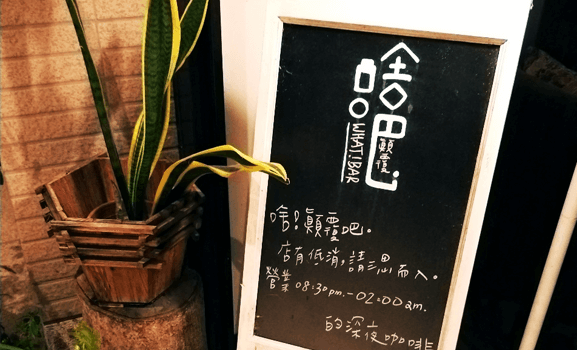 啥吧
顛覆
WHAT!BAR
啥!顛覆吧。
店有低消,請三思而入。
營業08:30pm.-02:00am.
的深夜咖啡